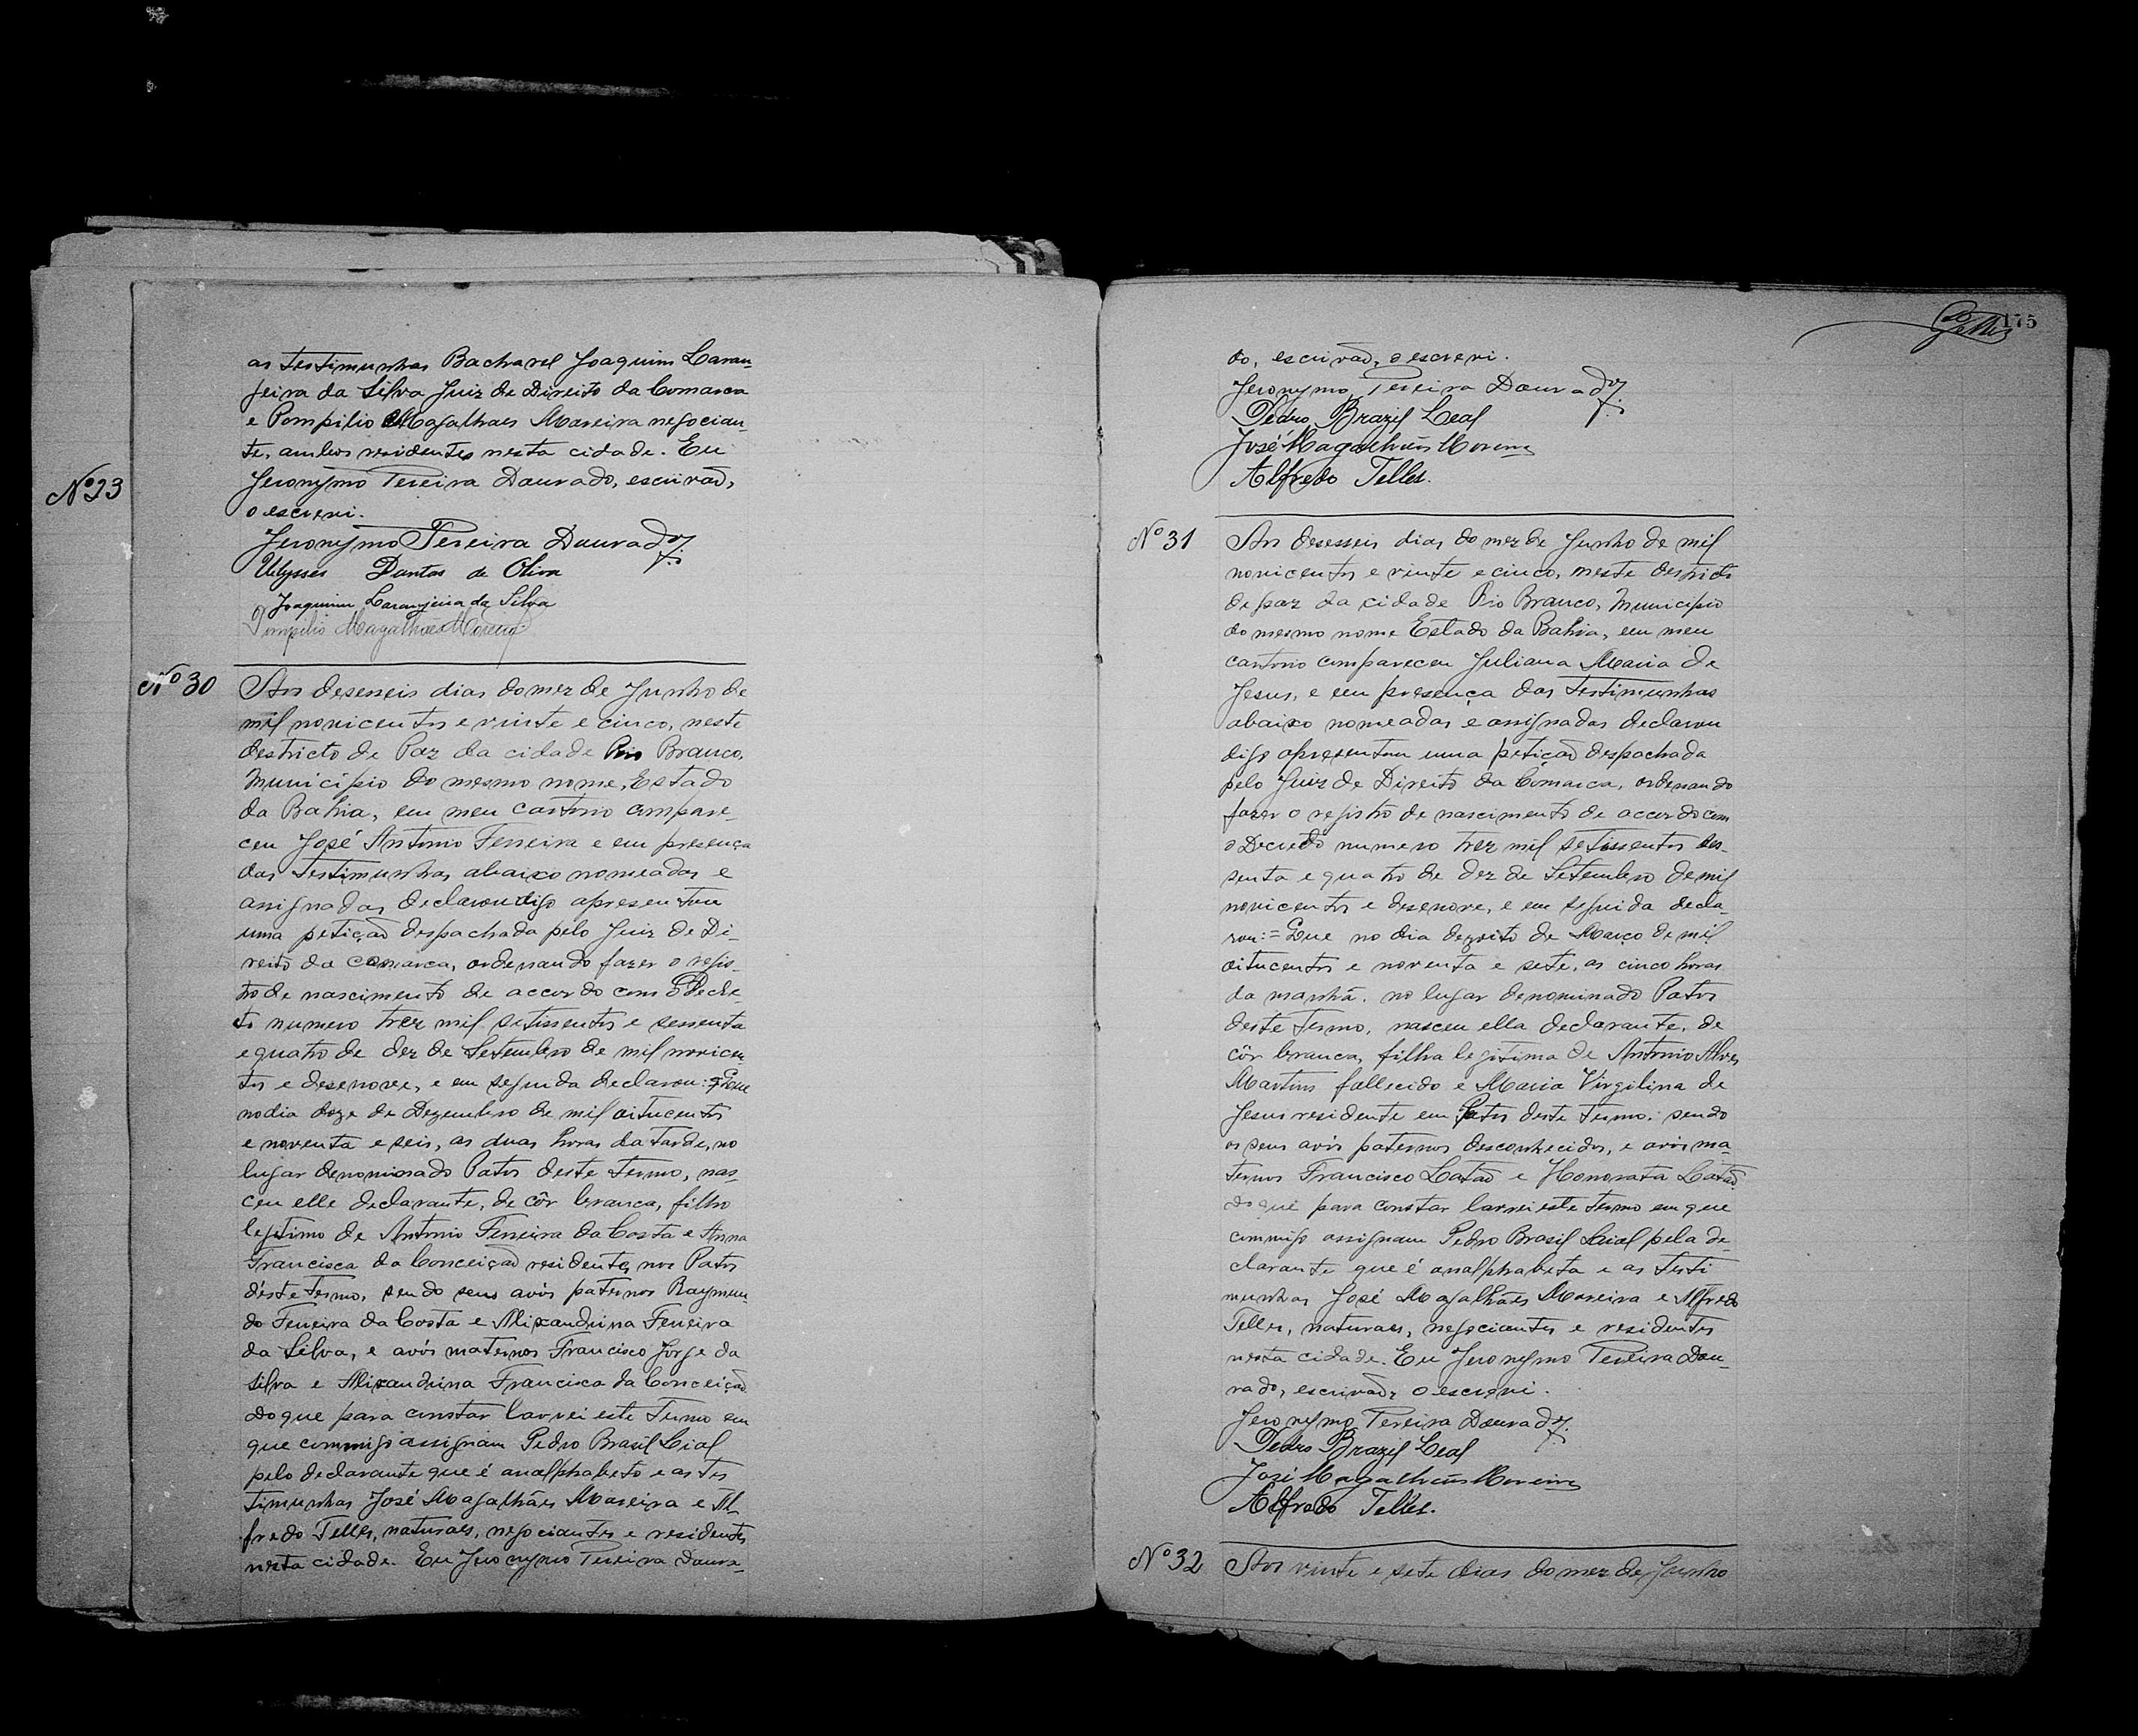 as testimunhas Bacharel Joaquim Laran-
jeira da Silva Juiz de Direito da Comarca
e Pompilio Magalhaes Moreira negocian-
te, ambos residentes nesta cidade. Eu
Jeronymo Pereira Dourado, escrivão,
o escrevi.
Jeronymo Pereira Dourado
Ulysses Dantas de Oliva
Joaquim Laranjeira da Silva
Pompilio Magalhães Moreira
Nº 23
Nº 30
Aos deseseis dias do mez de Junho de
mil novicentos e vinte e cinco, neste
destricto de Paz da cidade Rio Branco,
Municipio do mesmo nome, Estado
da Bahia, em meu cartorio compare-
ceu José Antonio Ferreira e em presença
das testimunhas abaixo nomeadas e
assignadas declarou digo apresentou
uma petição despachada pelo Juiz de Di-
reito da Comarca, ordenando fazer o regis-
tro de nascimento de accordo com o Decre-
to numero trez mil setissentos e sessenta
e quatro de dez de Setembro de mil novicen
tos e desenove, e em seguida declarou: Que
no dia doze de Dezembro de mil oitucentos
e noventa e seis, as duas horas da tarde, no
lugar denominado Patos deste termo, nas-
ceu elle declarante, de côr branca, filho
legitimo de Antonio Ferreira da Costa e Anna
Francisca da Conceição residentes nos Patos
déste termo, sendo seus avós paternos Raymun-
do Ferreira da Costa e Alixandrina Ferreira
da Silva, e avós maternos Francisco Jorge da
Silva e Alixandrina Francisca da Conceição
Do que para constar lavrei este termo em
que commigo assignam Pedro Brasil Lial
pelo declarante que é analphabeto e as tes
timunhas José Magalhães Moreira e Al-
fredo Telles, naturaes, negociantes e residentes
nesta cidade. Eu Jeronymo Pereira Doura-
175
do, escrivão, o escrevi.
Jeronymo Pereira Dourado
Pedro Brazil Leal
José Magalhães Moreira
Alfredo Telles.
Nº 31
Aos desesseis dias do mez de Junho de mil
novicentos e vinte e cinco, neste destricto
de paz da cidade Rio Branco, Municipio
do mesmo nome Estado da Bahia, em meu
cartorio compareceu Juliana Maria de
Jesus, e em presença das testimunhas
abaixo nomeadas e assignadas declarou
digo apresentou uma petição despachada
pelo Juiz de Direito da Comarca, ordenando
fazer o registro de nascimento de accordo com
o Decreto numero trez mil setissentos ses-
senta e quatro de dez de Setembro de mil
novicentos e desenove, e em seguida decla-
rou:= Que no dia dezoito de Março de mil
oitucentos e noventa e sete, as cinco horas
da manhã. no lugar denominado Patos
deste termo, nasceu ella declarante, de
côr branca, filha legitima de Antonio Alves
Martins fallecido e Maria Virgilina de
Jesus residente em Patos deste termo; sendo
os seus avós paternos desconhecidos, e avós ma-
ternos Francisco Catão e Honorata Catão
Do que para constar lavrei este termo em que
commigo assignam Pedro Brasil Leial pela de-
clarante que é analphabeta e as testi
munhas José Magalhães Moreira e Alfredo
Telles, naturaes, negociantes e residentes
nesta cidade. Eu Jeronymo Pereira Dou-
rado, escrivão, o escrevi.
Jeronymo Pereira Dourado
Pedro Brazil Leal
José Magalhães Moreira
Alfredo Telles.
Nº 32
Aos vinte e sete dias do mez de Junho